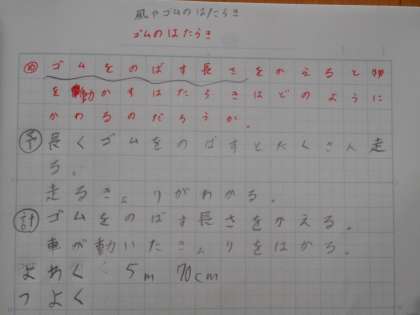 風やゴムのはたらき
ゴムのはたらき
め ゴムをのばす長さをかえると物
を動かすはたらきはどのように
かわるのだろうか。
予 長くゴムをのばすとたくさん走
る。
走るきょりがわかる。
計 ゴムをのばす長さをかえる。
車が動いたきょりをはかる。
よわく 5m 70cm
つよく